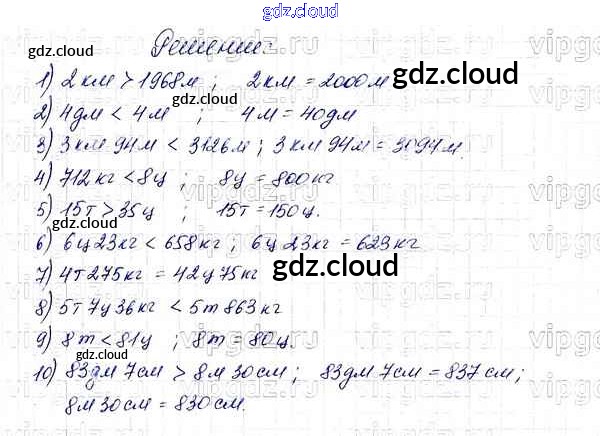 gdz.cloud
gdz.cloud
Решение:
1) 2 км > 1968 м ; 2 км = 2000 м
gdz.cloud
gdz.cloud
2) 4 дм < 4 м ; 4 м = 40 дм
3) 3 км 94 м < 3126 м ; 3 км 94 м = 3094 м.
4) 712 кг < 8 ц ; 8 ц = 800 кг
5) 15 т > 35 ц ; 15 т = 150 ц.
gdz.cloud
6) 6 ц 23 кг < 658 кг ; 6 ц 23 кг = 623 кг
7) 4 т 275 кг = 42 ц 75 кг
gdz.cloud
8) 5 т 7 ц 36 кг < 5 т 863 кг
9) 8 т < 81 ц ; 8 т = 80 ц.
gdz.cloud
10) 83 дм 7 см > 8 м 30 см ; 83 дм 7 см = 837 см ;
8 м 30 см = 830 см.